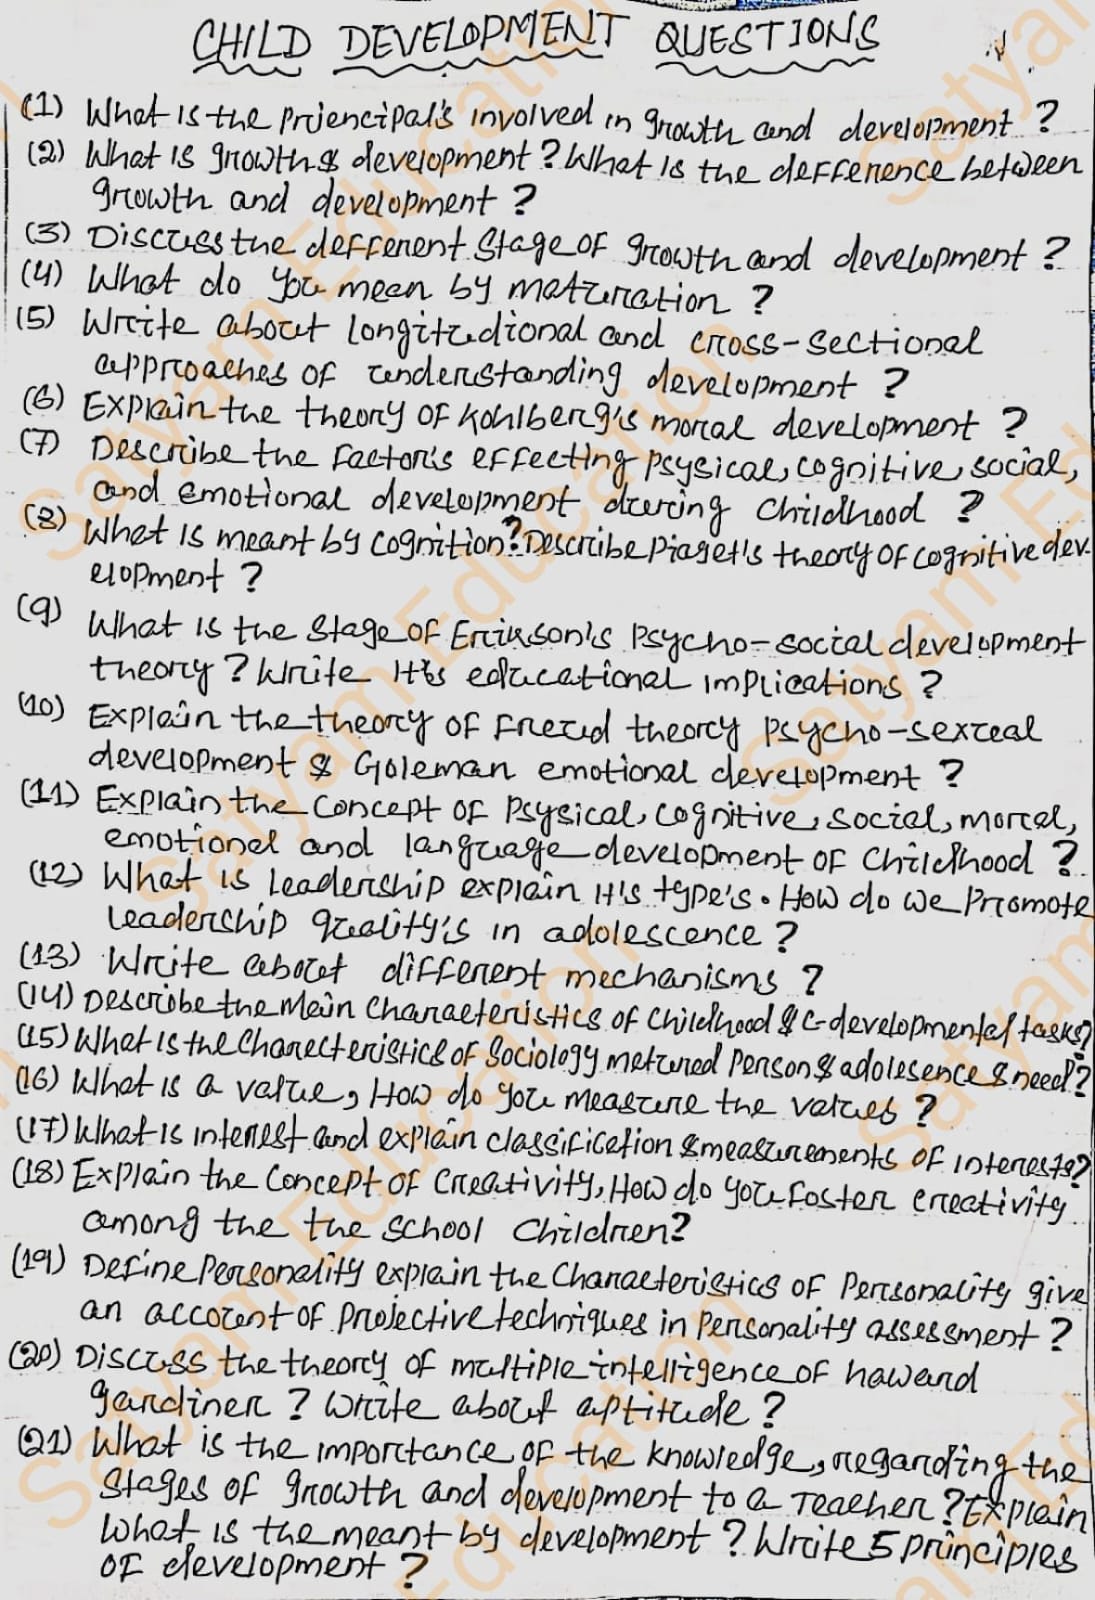 CHILD DEVELOPMENT QUESTIONS
(1) What is the prjencipal's involved in growth and development ?
(2) What is growth & development ? What is the defference between
growth and development ?
(3) Discuss the defferent stage of growth and development ?
(4) What do you mean by maturation ?
(5) Write about longitudional and cross-sectional
approaches of understanding development ?
(6) Explain the theory of Kohlberg's moral development ?
(7) Describe the factor's effecting psysical, cognitive, social,
and emotional development during childhood ?
(8) What is meant by cognition? Describe piaget's theory of cognitive dev-
elopment ?
(9) What is the stage of Erikson's psycho-social development
theory ? Write it's educational implications ?
(10) Explain the theory of Freud theory psycho-sexual
development & Goleman emotional development ?
(11) Explain the concept of psysical, cognitive, social, moral,
emotional and language development of childhood ?
(12) What is leadership explain it's type's. How do we promote
leadership quality's in adolescence ?
(13) Write about different mechanisms ?
(14) Describe the main characteristics of childhood & C-developmental tasks?
(15) What is the charecteristics of sociology matured person & adolesence & need?
(16) What is a value, How do you measure the values ?
(17) What is interest and explain classification & measurements of interests?
(18) Explain the concept of creativity, How do you foster creativity
among the the school children?
(19) Define personality explain the characteristics of personality give
an account of projective techniques in personality assessment ?
(20) Discuss the theory of multiple intelligence of haward
gardiner ? write about aptitude ?
(21) What is the importance of the knowledge, regarding the
stages of growth and development to a Teacher ? Explain
what is the meant by development ? Write 5 principles
of development ?
Satyam Education